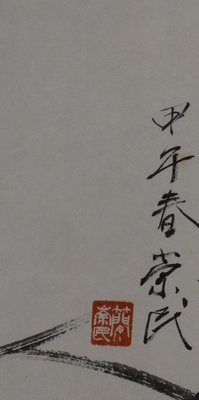 甲午春崇民